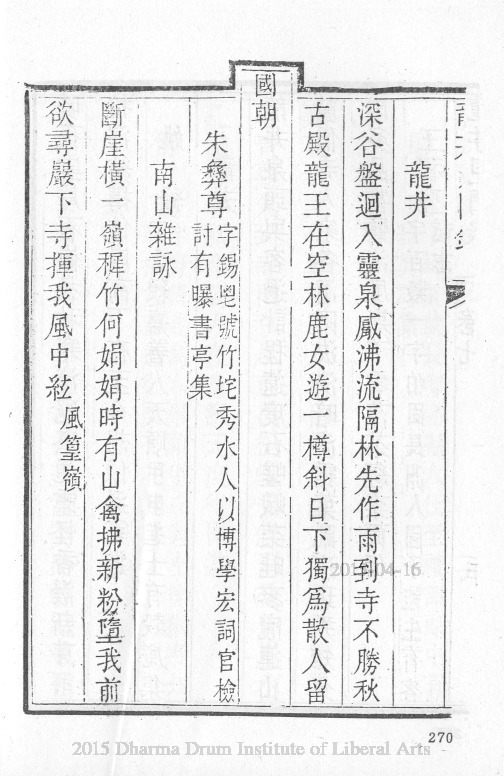 龍井
深谷盤迴入靈泉觱沸流隔林先作雨到寺不勝秋
古殿龍王在空林鹿女遊一樽斜日下獨爲散人留
國朝
朱彝尊字錫鬯號竹垞秀水人以博學宏詞官檢
討有曝書亭集
南山雜詠
斷崖橫一嶺穉竹何娟娟時有山禽拂新粉墮我前
欲尋巖下寺揮我風中絃風篁嶺
2015-04-16
270
2015 Dharma Drum Institute of Liberal Arts